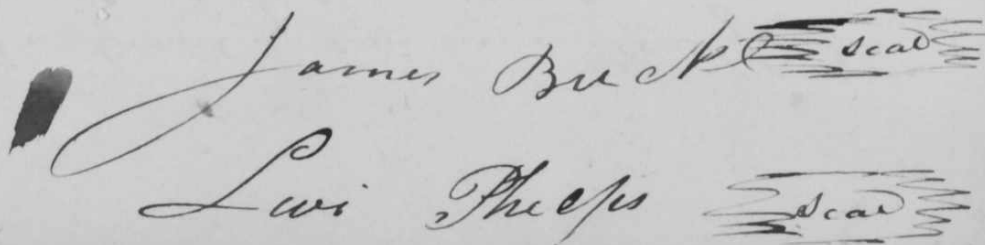 James Buck seal
Levi Phelps seal